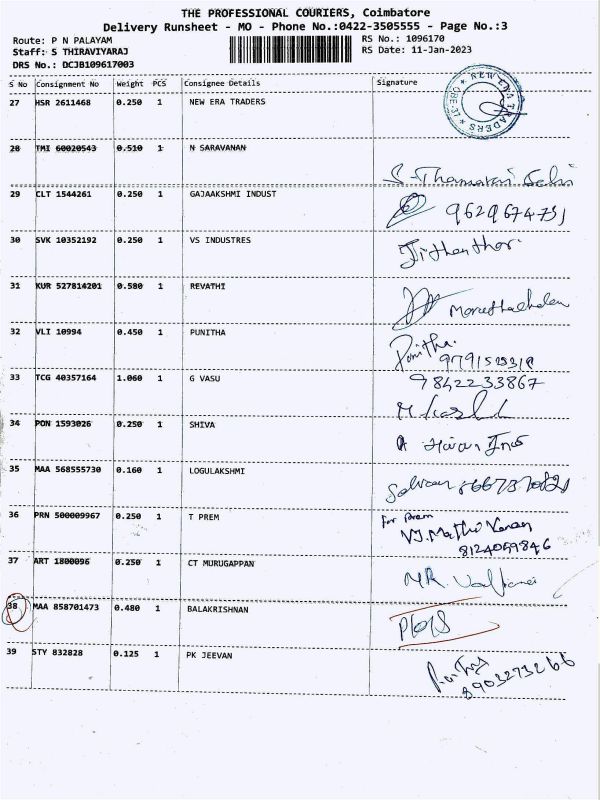 THE PROFESSIONAL COURIERS, Coimbatore
Delivery Runsheet - MO - Phone No.:0422-3505555 - Page No.:3
Route: P N PALAYAM RS No.: 1096170
Staff: S THIRAVIYARAJ RS Date: 11-Jan-2023
DRS No.: DCJB109617003
S No Consignment No Weight PCS Consignee Details Signature
27 HSR 2611468 0.250 1 NEW ERA TRADERS
NEW ERA TRADERS
28 TMI 60020543 0.510 1 N SARAVANAN
29 CLT 1544261 0.250 1 GAJAAKSHMI INDUST 9629674731
30 SVK 10352192 0.250 1 VS INDUSTRES
31 KUR 527814201 0.580 1 REVATHI
32 VLI 10994 0.450 1 PUNITHA Punitha
33 TCG 40357164 1.060 1 G VASU 9842233867
34 PON 1593026 0.250 1 SHIVA
35 MAA 568555730 0.160 1 LOGULAKSHMI
36 PRN 500009967 0.250 1 T PREM For Prem
8124059846
37 ART 1800096 0.250 1 CT MURUGAPPAN
38 MAA 858701473 0.480 1 BALAKRISHNAN
39 STY 832828 0.125 1 PK JEEVAN
8903273266